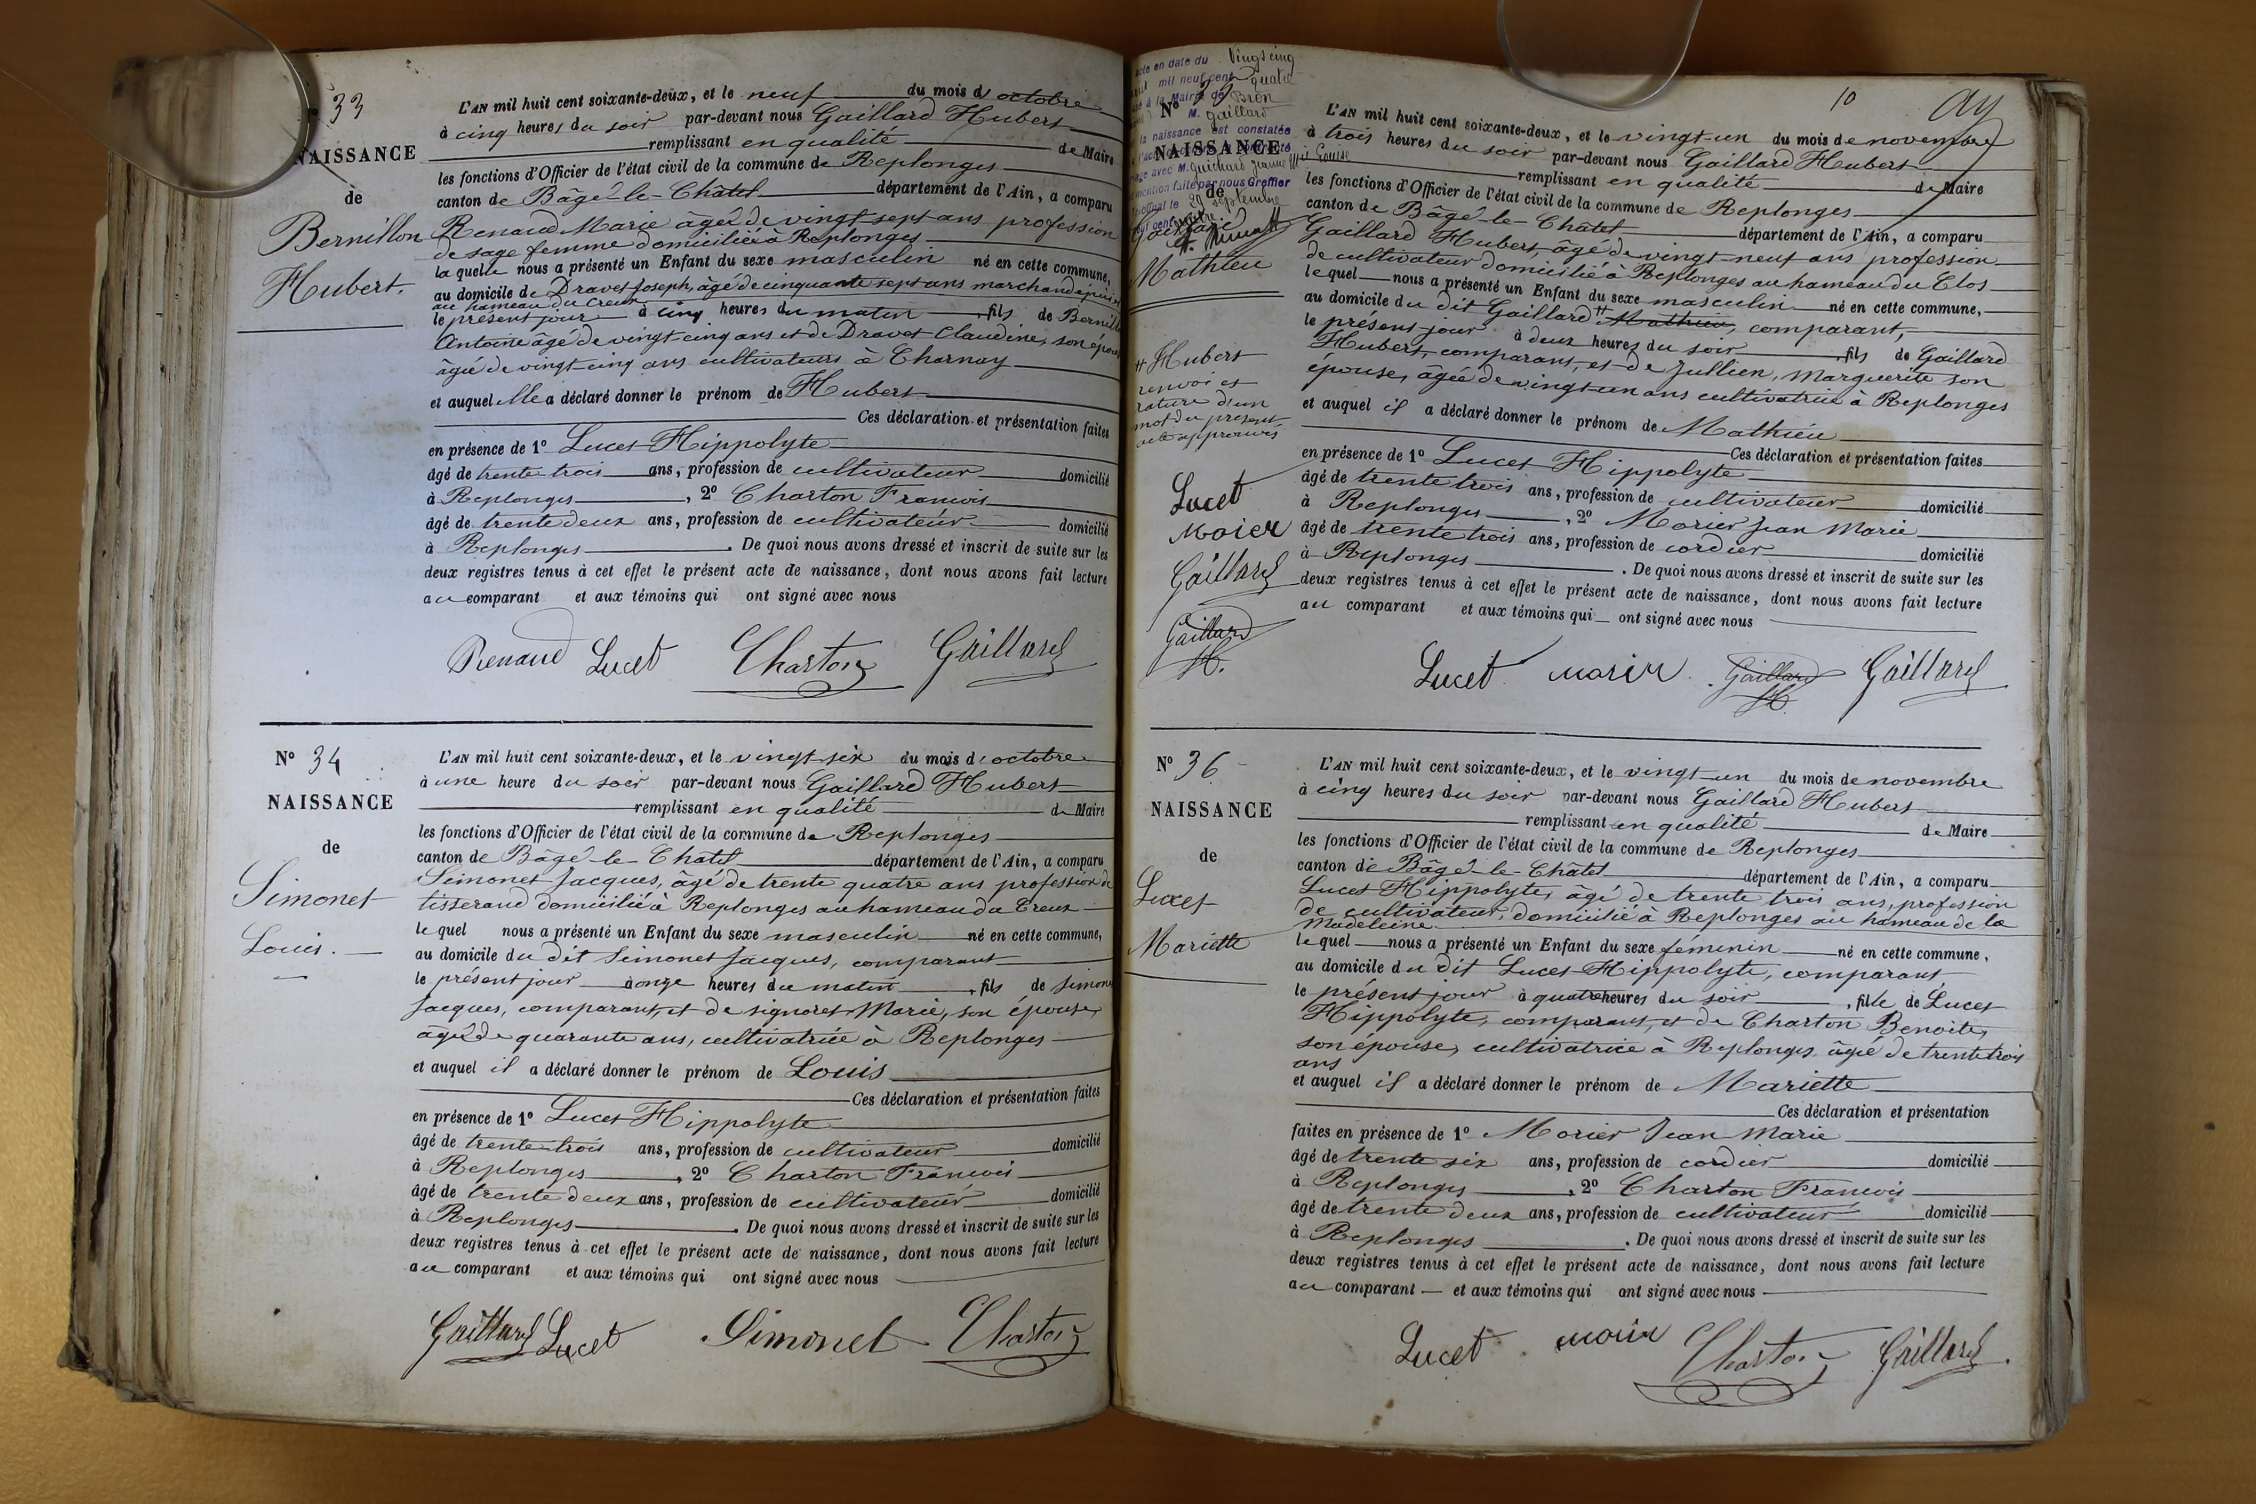 33
NAISSANCE
de
Bernillon
Hubert.
L'AN mil huit cent soixante-deux, et le neuf du mois d'octobre
à cinq heures du soir par-devant nous Gaillard Hubert
remplissant en qualité de Maire
les fonctions d'Officier de l'état civil de la commune de Replonges
canton de Bâgé-le-Châtel département de l'Ain, a comparu
Renaud Marie âgée de vingt sept ans profession
de sage femme domiciliée à Replonges
la quelle nous a présenté un Enfant du sexe masculin né en cette commune,
au domicile de Dravet Joseph, âgé de cinquante sept ans marchand épicier
au hameau du Creux
le présent jour à cinq heures du matin, fils de Bernillon
Antoine âgé de vingt cinq ans et de Dravet Claudine, son épouse
âgée de vingt cinq ans cultivateurs à Charnay
et auquel elle a déclaré donner le prénom de Hubert
Ces déclaration et présentation faites
en présence de 1° Lucet Hippolyte
âgé de trente trois ans, profession de cultivateur domicilié
à Replonges, 2° Charton Francois
âgé de trente deux ans, profession de cultivateur domicilié
à Replonges. De quoi nous avons dressé et inscrit de suite sur les
deux registres tenus à cet effet le présent acte de naissance, dont nous avons fait lecture
au comparant et aux témoins qui ont signé avec nous
Renaud Lucet Charton Gaillard
N° 34
NAISSANCE
de
Simonet
Louis.
L'AN mil huit cent soixante-deux, et le vingt six du mois d'octobre
à une heure du soir par-devant nous Gaillard Hubert
remplissant en qualité de Maire
les fonctions d'Officier de l'état civil de la commune de Replonges
canton de Bâgé-le-Châtel département de l'Ain, a comparu
Simonet Jacques, âgé de trente quatre ans profession de
tisserand domicilié à Replonges au hameau du Creux
le quel nous a présenté un Enfant du sexe masculin né en cette commune,
au domicile du dit Simonet Jacques, comparant
le présent jour à onze heures du matin, fils de Simonet
Jacques, comparant, et de Signoret Marie, son épouse,
âgée de quarante ans, cultivatrice à Replonges
et auquel il a déclaré donner le prénom de Louis
Ces déclaration et présentation faites
en présence de 1° Lucet Hippolyte
âgé de trente trois ans, profession de cultivateur domicilié
à Replonges, 2° Charton Francois
âgé de trente deux ans, profession de cultivateur domicilié
à Replonges. De quoi nous avons dressé et inscrit de suite sur les
deux registres tenus à cet effet le présent acte de naissance, dont nous avons fait lecture
au comparant et aux témoins qui ont signé avec nous
Gaillard Lucet Simonet Charton
10
acte en date du vingt cinq
mil neuf cent quatre
à la Mairie de Bron
M. Gaillard
la naissance est constatée
avec M. Guichard Jeanne Louise
mention faite par nous Greffier
le 29 septembre
N°
NAISSANCE
de
Gaillard
Mathieu
# Hubert
renvoi et
rature d'un
mot du présent
acte approuvés
Lucet
Morier
Gaillard
Gaillard
H.
L'AN mil huit cent soixante-deux, et le vingt un du mois de novembre
à trois heures du soir par-devant nous Gaillard Hubert
remplissant en qualité de Maire
les fonctions d'Officier de l'état civil de la commune de Replonges
canton de Bâgé-le-Châtel département de l'Ain, a comparu
Gaillard Hubert, âgé de vingt neuf ans profession
de cultivateur domicilié à Replonges au hameau du Clos
le quel nous a présenté un Enfant du sexe masculin né en cette commune,
au domicile du dit Gaillard # Mathieu, comparant,
le présent jour à deux heures du soir, fils de Gaillard
Hubert, comparant, et de Jullien, Marguerite son
épouse, âgée de vingt un ans cultivatrice à Replonges
et auquel il a déclaré donner le prénom de Mathieu
Ces déclaration et présentation faites
en présence de 1° Lucet Hippolyte
âgé de trente trois ans, profession de cultivateur domicilié
à Replonges, 2° Morier Jean Marie
âgé de trente trois ans, profession de cordier domicilié
à Replonges. De quoi nous avons dressé et inscrit de suite sur les
deux registres tenus à cet effet le présent acte de naissance, dont nous avons fait lecture
au comparant et aux témoins qui ont signé avec nous
Lucet Morier Gaillard H. Gaillard
N° 36
NAISSANCE
de
Lucet
Mariette
L'AN mil huit cent soixante-deux, et le vingt un du mois de novembre
à cinq heures du soir par-devant nous Gaillard Hubert
remplissant en qualité de Maire
les fonctions d'Officier de l'état civil de la commune de Replonges
canton de Bâgé-le-Châtel département de l'Ain, a comparu
Lucet Hippolyte, âgé de trente trois ans, profession
de cultivateur, domicilié à Replonges au hameau de la
Madeleine
le quel nous a présenté un Enfant du sexe féminin né en cette commune,
au domicile du dit Lucet Hippolyte, comparant
le présent jour à quatre heures du soir, fille de Lucet
Hippolyte, comparant, et de Charton Benoite,
son épouse, cultivatrice à Replonges âgée de trente trois
ans
et auquel il a déclaré donner le prénom de Mariette
Ces déclaration et présentation
faites en présence de 1° Morier Jean Marie
âgé de trente six ans, profession de cordier domicilié
à Replonges, 2° Charton Francois
âgé de trente deux ans, profession de cultivateur domicilié
à Replonges. De quoi nous avons dressé et inscrit de suite sur les
deux registres tenus à cet effet le présent acte de naissance, dont nous avons fait lecture
au comparant et aux témoins qui ont signé avec nous
Lucet Morier Charton Gaillard